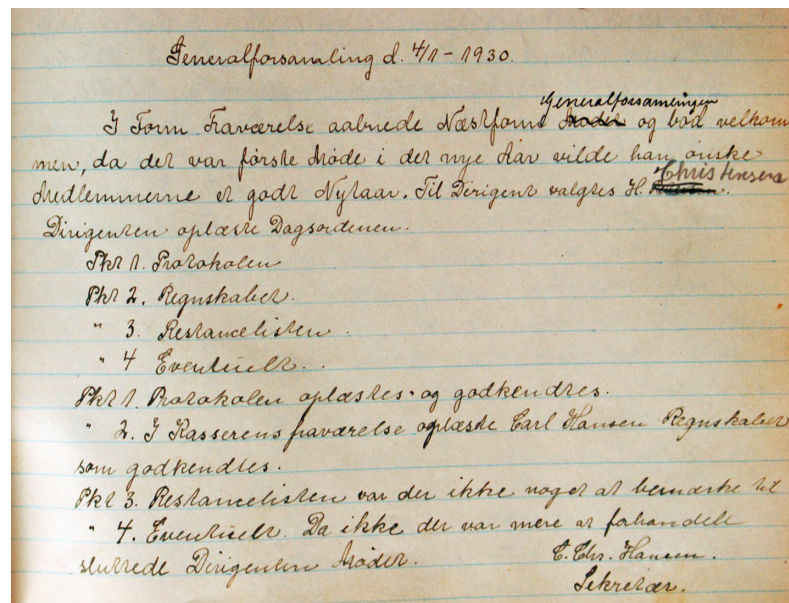 Generalforsamling d. 4/1 - 1930.
Generalforsamlingen
I Form Fraværelse aabnede Næstform Mødet og bød velkom
men, da det var første Møde i det nye Aar vilde han ønske
Medlemmerne et godt Nytaar. Til Dirigent valgtes H. Christensen.
Dirigenten oplæste Dagsordenen.
Pkt 1. Protokolen
Pkt 2. Regnskabet.
" 3. Restancelisten.
" 4 Eventuelt.
Pkt 1. Protokolen oplæstes og godkendtes.
" 2. I Kasserens fraværelse oplæste Carl Hansen Regnskabet
som godkendtes.
Pkt 3. Restancelisten var der ikke noget at bemærke til
" 4. Eventuelt. Da ikke der var mere at forhandelt
sluttede Dirigenten Mødet.
C. Chr. Hansen.
Sekretær.